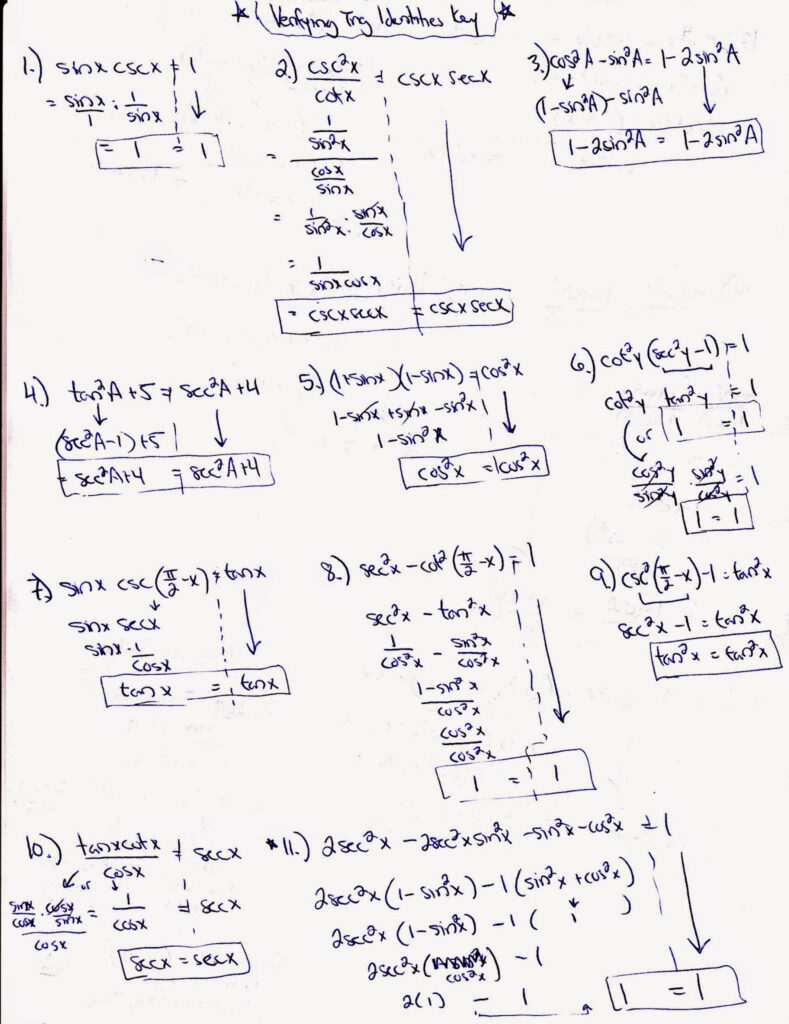 * Verifying Trig Identities Key *
1.) sinx cscx = 1
= sinx/1 · 1/sinx
= 1 = 1
2.) csc²x/cotx = cscx secx
= (1/sin²x)/(cosx/sinx)
= 1/sin²x · sinx/cosx
= 1/sinxcosx
= cscxsecx = cscxsecx
3.) cos²A - sin²A = 1 - 2sin²A
(1-sin²A) - sin²A
1-2sin²A = 1-2sin²A
4.) tan²A + 5 = sec²A + 4
(sec²A-1)+5
= sec²A+4 = sec²A+4
5.) (1+sinx)(1-sinx) = cos²x
1-sinx+sinx-sin²x
1-sin²x
cos²x = cos²x
6.) cot²y(sec²y-1) = 1
cot²y tan²y = 1
or 1 = 1
cos²y/sin²y · sin²y/cos²y = 1
1 = 1
7.) sinx csc(π/2-x) = tanx
sinx secx
sinx · 1/cosx
tanx = tanx
8.) sec²x - cot²(π/2-x) = 1
sec²x - tan²x
1/cos²x - sin²x/cos²x
1-sin²x/cos²x
cos²x/cos²x
1 = 1
9.) csc²(π/2-x)-1 = tan²x
sec²x - 1 = tan²x
tan²x = tan²x
10.) tanxcotx/cosx = secx
or
(sinx/cosx · cosx/sinx)/cosx = 1/cosx = secx
secx = secx
*11.) 2sec²x - 2sec²xsin²x - sin²x - cos²x = 1
2sec²x(1-sin²x) - 1(sin²x+cos²x)
2sec²x(1-sin²x) - 1( 1 )
2sec²x(cos²x) - 1
2(1) - 1 1 = 1